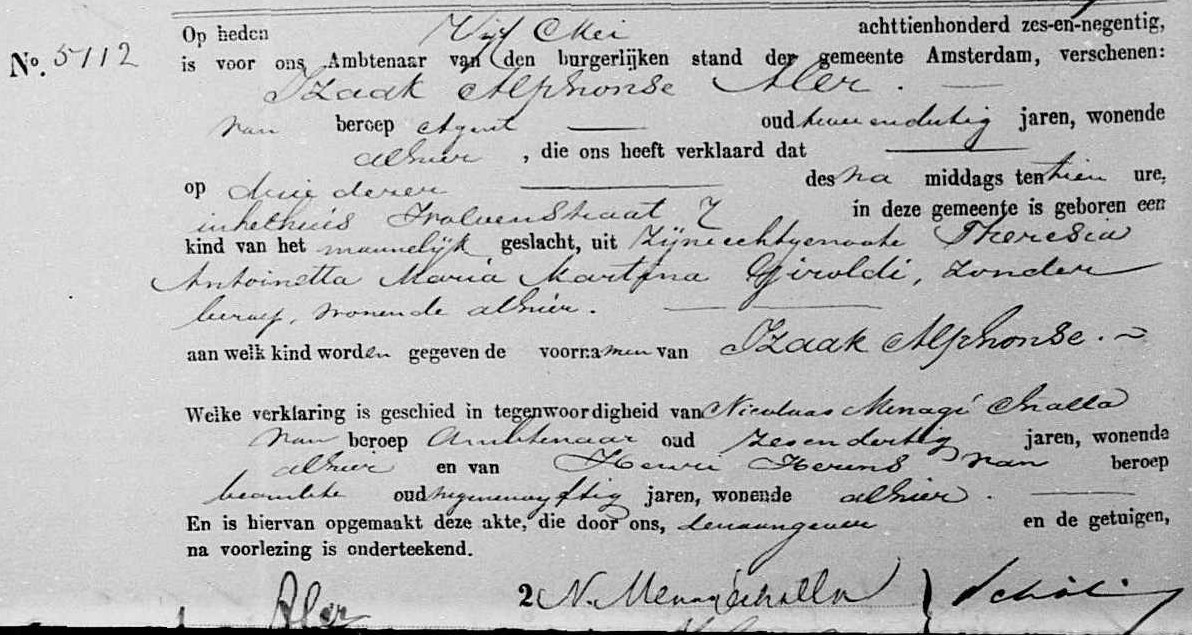 Op heden Vijf Mei achttienhonderd zes-en-negentig,
No. 5112 is voor ons Ambtenaar van den burgerlijken stand der gemeente Amsterdam, verschenen:
Izaak Alphonse Aler.
van beroep Agent oud twee en dertig jaren, wonende
alhier, die ons heeft verklaard dat
op drie dezer des na middags ten tien ure,
in het huis straat 7 in deze gemeente is geboren een
kind van het mannelijk geslacht, uit zijne echtgenoote Theresia
Antoinetta Maria Martina Giroldi, zonder
beroep, wonende alhier.
aan welk kind worden gegeven de voornamen van Izaak Alphonse.
Welke verklaring is geschied in tegenwoordigheid van Nicolaas Menagé Challa
van beroep Ambtenaar oud zes en dertig jaren, wonende
alhier en van Henri van beroep
beambte oud negen en vyftig jaren, wonende alhier.
En is hiervan opgemaakt deze akte, die door ons, den aangever en de getuigen,
na voorlezing is onderteekend.
Aler 2 N. Menagé Challa